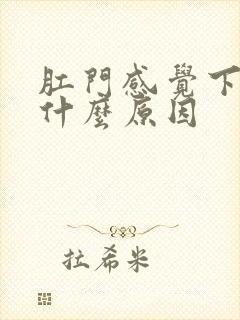 肛門感覺下
什麼原因
拉希米